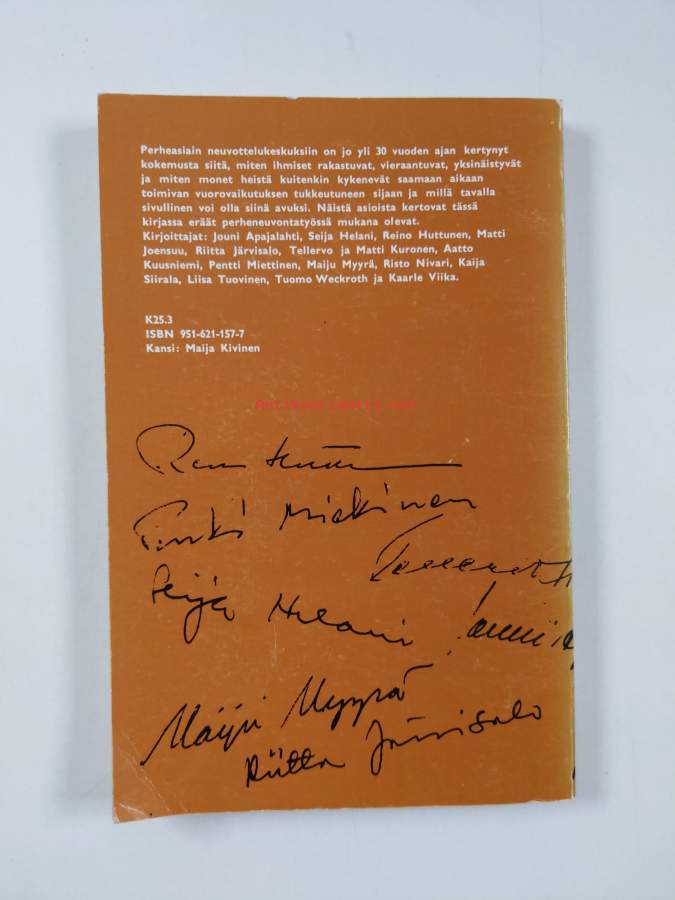 Perheasiain neuvottelukeskuksiin on jo yli 30 vuoden ajan kertynyt
kokemusta siitä, miten ihmiset rakastuvat, vieraantuvat, yksinäistyvät
ja miten monet heistä kuitenkin kykenevät saamaan aikaan
toimivan vuorovaikutuksen tukkeutuneen sijaan ja millä tavalla
sivullinen voi olla siinä avuksi. Näistä asioista kertovat tässä
kirjassa eräät perheneuvontatyössä mukana olevat.
Kirjoittajat: Jouni Apajalahti, Seija Helani, Reino Huttunen, Matti
Joensuu, Riitta Järvisalo, Tellervo ja Matti Kuronen, Aatto
Kuusniemi, Pentti Miettinen, Maiju Myyrä, Risto Nivari, Kaija
Siirala, Liisa Tuovinen, Tuomo Weckroth ja Kaarle Viika.
K25.3
ISBN 951-621-157-7
Kansi: Maija Kivinen
Seija Helani
Maiju Myyrä
Riitta Järvisalo